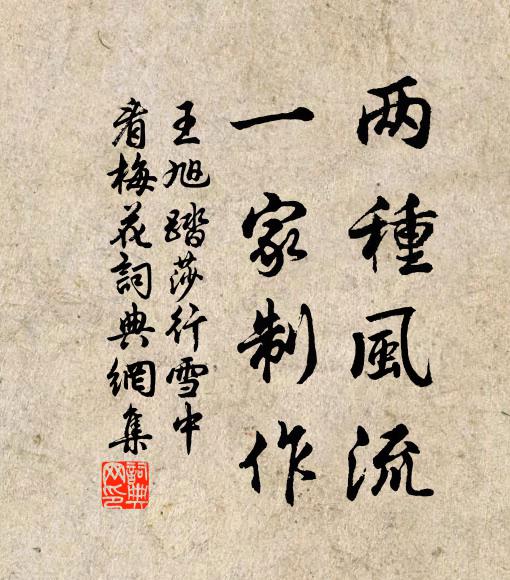 两種風流
一家制作
王旭踏莎行雪中
看梅花詞典網集
詞典網印